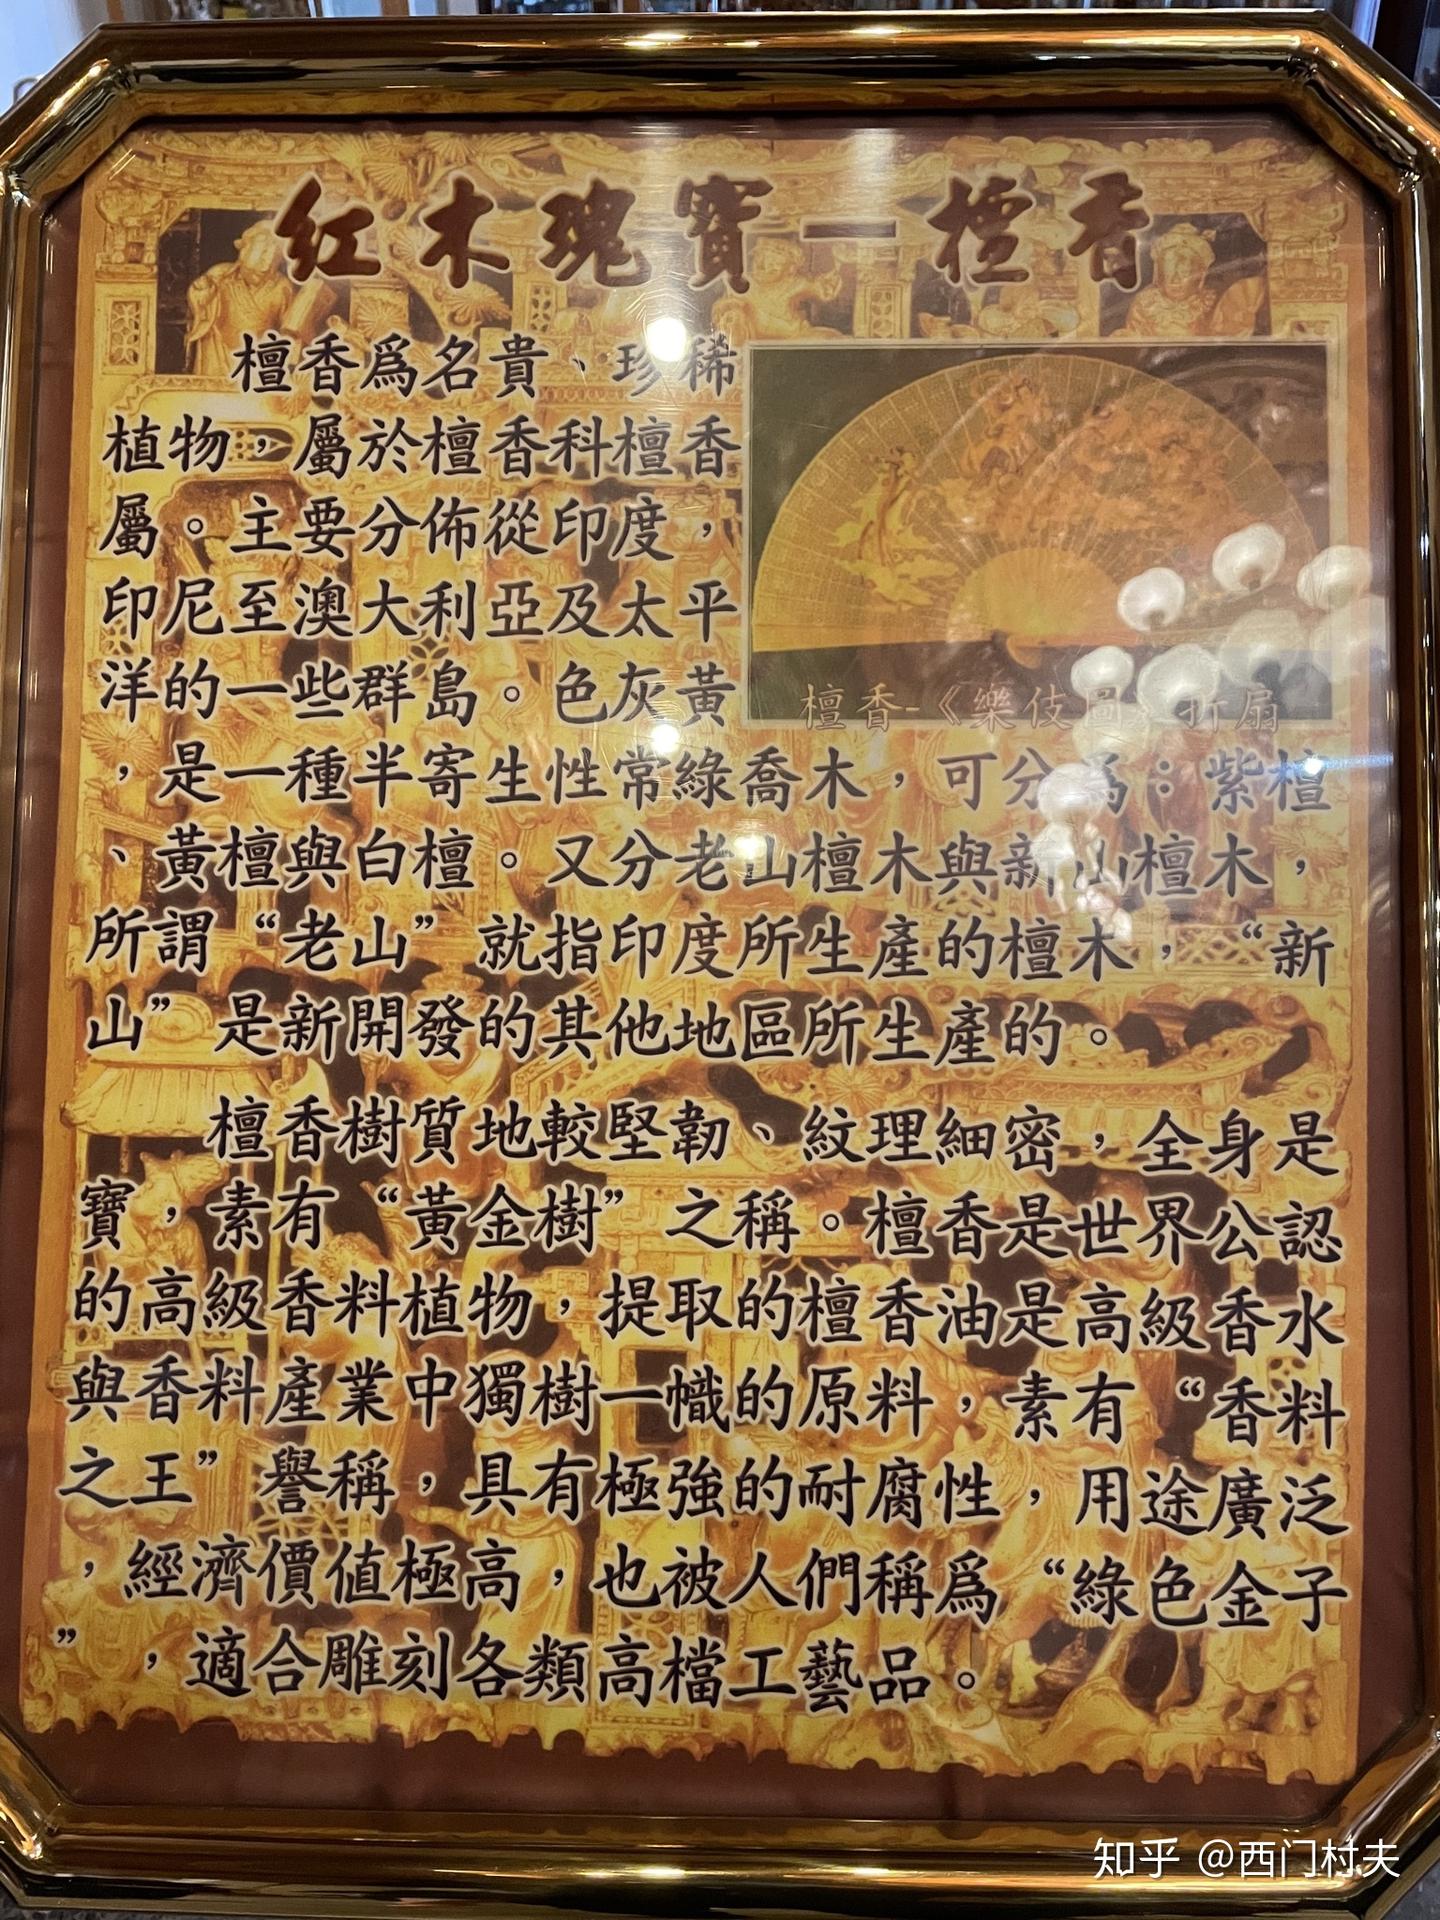 红木瑰寶—檀香
檀香爲名貴、珍稀
植物，屬於檀香科檀香
屬。主要分佈從印度，
印尼至澳大利亞及太平
洋的一些群島。色灰黃
檀香-《樂伎圖》折扇
，是一種半寄生性常綠喬木，可分為：紫檀
、黃檀與白檀。又分老山檀木與新山檀木，
所謂“老山”就指印度所生產的檀木，“新
山”是新開發的其他地區所生產的。
檀香樹質地較堅韌、紋理細密，全身是
寶，素有“黃金樹”之稱。檀香是世界公認
的高級香料植物，提取的檀香油是高級香水
與香料產業中獨樹一幟的原料，素有“香料
之王”譽稱，具有極強的耐腐性，用途廣泛
，經濟價值極高，也被人們稱爲“綠色金子
”，適合雕刻各類高檔工藝品。
知乎 @西门村夫